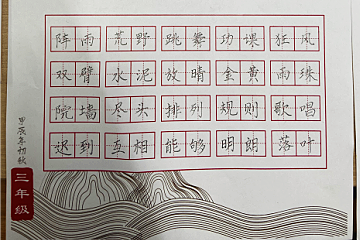 阵雨 荒野 跳舞 功课 狂风
双臂 水泥 放晴 金黄 雨珠
院墙 尽头 排列 规则 歌唱
迟到 互相 能够 明朗 落叶
甲辰年初秋
三年级